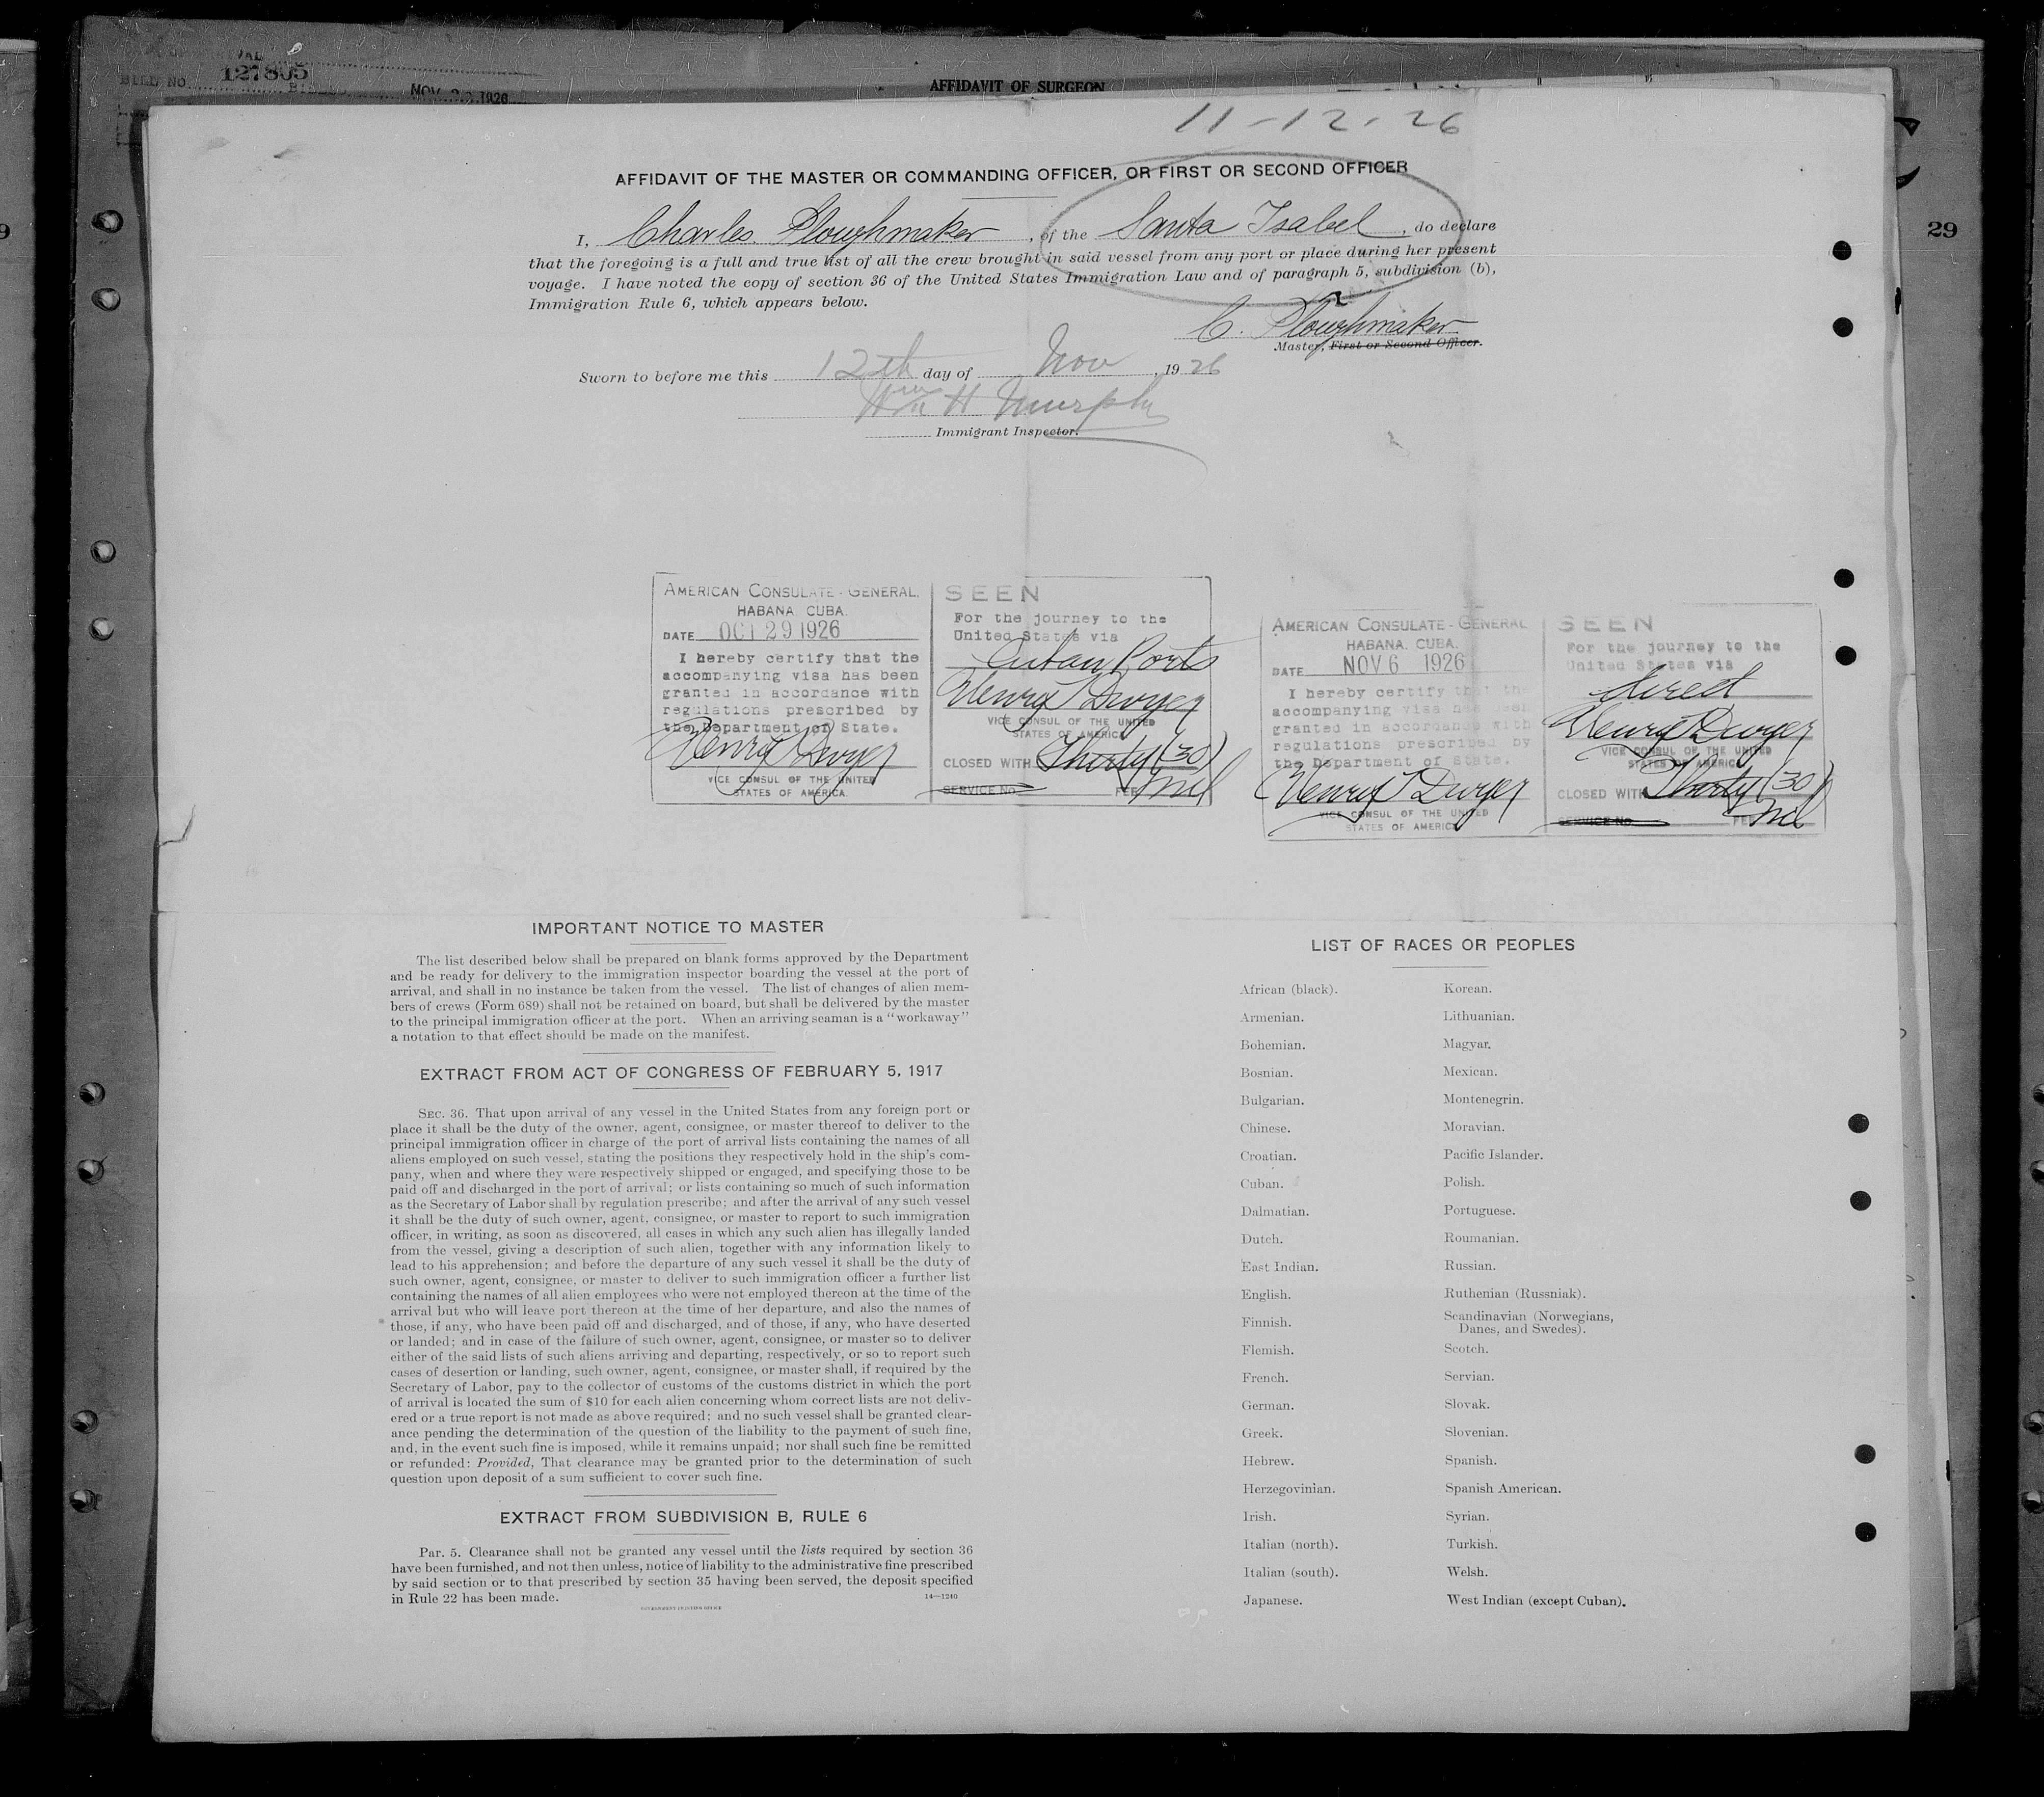 BILL NO. 127805
NOV 1926
AFFIDAVIT OF SURGEON
11-12-26
29
AFFIDAVIT OF THE MASTER OR COMMANDING OFFICER, OR FIRST OR SECOND OFFICER
I, Charles Ploughmaker, of the Santa Isabel, do declare
that the foregoing is a full and true list of all the crew brought in said vessel from any port or place during her present
voyage. I have noted the copy of section 36 of the United States Immigration Law and of paragraph 5, subdivision (b),
Immigration Rule 6, which appears below.
C. Ploughmaker
Master, First or Second Officer.
Sworn to before me this 12th day of Nov, 1926
Wm H Murphy
Immigrant Inspector.
AMERICAN CONSULATE-GENERAL.
HABANA. CUBA.
DATE OCT 29 1926
I hereby certify that the
accompanying visa has been
granted in accordance with
regulations prescribed by
the Department of State.
Henry T Dwyer
VICE CONSUL OF THE UNITED
STATES OF AMERICA.
SEEN
For the journey to the
United States via
Cuban Ports
Henry T Dwyer
VICE CONSUL OF THE UNITED
STATES OF AMERICA
CLOSED WITH Thirty (30)
SERVICE NO. FEE nil
AMERICAN CONSULATE-GENERAL
HABANA. CUBA.
DATE NOV 6 1926
I hereby certify that the
accompanying visa has been
granted in accordance with
regulations prescribed by
the Department of State.
Henry T Dwyer
VICE CONSUL OF THE UNITED
STATES OF AMERICA
SEEN
For the journey to the
United States via
direct
Henry T Dwyer
VICE CONSUL OF THE UNITED
STATES OF AMERICA
CLOSED WITH Thirty (30)
SERVICE NO. FEE nil
IMPORTANT NOTICE TO MASTER
The list described below shall be prepared on blank forms approved by the Department
and be ready for delivery to the immigration inspector boarding the vessel at the port of
arrival, and shall in no instance be taken from the vessel. The list of changes of alien mem-
bers of crews (Form 689) shall not be retained on board, but shall be delivered by the master
to the principal immigration officer at the port. When an arriving seaman is a "workaway"
a notation to that effect should be made on the manifest.
EXTRACT FROM ACT OF CONGRESS OF FEBRUARY 5, 1917
SEC. 36. That upon arrival of any vessel in the United States from any foreign port or
place it shall be the duty of the owner, agent, consignee, or master thereof to deliver to the
principal immigration officer in charge of the port of arrival lists containing the names of all
aliens employed on such vessel, stating the positions they respectively hold in the ship's com-
pany, when and where they were respectively shipped or engaged, and specifying those to be
paid off and discharged in the port of arrival; or lists containing so much of such information
as the Secretary of Labor shall by regulation prescribe; and after the arrival of any such vessel
it shall be the duty of such owner, agent, consignee, or master to report to such immigration
officer, in writing, as soon as discovered, all cases in which any such alien has illegally landed
from the vessel, giving a description of such alien, together with any information likely to
lead to his apprehension; and before the departure of any such vessel it shall be the duty of
such owner, agent, consignee, or master to deliver to such immigration officer a further list
containing the names of all alien employees who were not employed thereon at the time of the
arrival but who will leave port thereon at the time of her departure, and also the names of
those, if any, who have been paid off and discharged, and of those, if any, who have deserted
or landed; and in case of the failure of such owner, agent, consignee, or master so to deliver
either of the said lists of such aliens arriving and departing, respectively, or so to report such
cases of desertion or landing, such owner, agent, consignee, or master shall, if required by the
Secretary of Labor, pay to the collector of customs of the customs district in which the port
of arrival is located the sum of $10 for each alien concerning whom correct lists are not deliv-
ered or a true report is not made as above required; and no such vessel shall be granted clear-
ance pending the determination of the question of the liability to the payment of such fine,
and, in the event such fine is imposed, while it remains unpaid; nor shall such fine be remitted
or refunded: Provided, That clearance may be granted prior to the determination of such
question upon deposit of a sum sufficient to cover such fine.
EXTRACT FROM SUBDIVISION B, RULE 6
Par. 5. Clearance shall not be granted any vessel until the lists required by section 36
have been furnished, and not then unless, notice of liability to the administrative fine prescribed
by said section or to that prescribed by section 35 having been served, the deposit specified
in Rule 22 has been made.
14—1240
GOVERNMENT PRINTING OFFICE
LIST OF RACES OR PEOPLES
African (black).
Armenian.
Bohemian.
Bosnian.
Bulgarian.
Chinese.
Croatian.
Cuban.
Dalmatian.
Dutch.
East Indian.
English.
Finnish.
Flemish.
French.
German.
Greek.
Hebrew.
Herzegovinian.
Irish.
Italian (north).
Italian (south).
Japanese.
Korean.
Lithuanian.
Magyar.
Mexican.
Montenegrin.
Moravian.
Pacific Islander.
Polish.
Portuguese.
Roumanian.
Russian.
Ruthenian (Russniak).
Scandinavian (Norwegians,
Danes, and Swedes).
Scotch.
Servian.
Slovak.
Slovenian.
Spanish.
Spanish American.
Syrian.
Turkish.
Welsh.
West Indian (except Cuban).